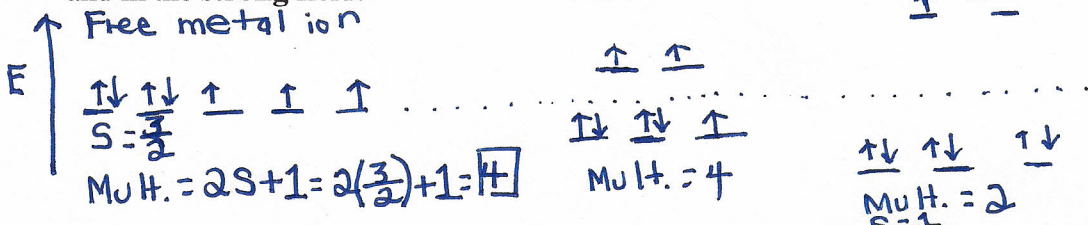 Free metal ion
E
↑↓ ↑↓ ↑ ↑ ↑
S = 3/2
Mult. = 2S+1 = 2(3/2)+1 = 4
↑ ↑
↑↓ ↑↓ ↑
Mult. = 4
↑
↑↓ ↑↓ ↑↓
Mult. = 2